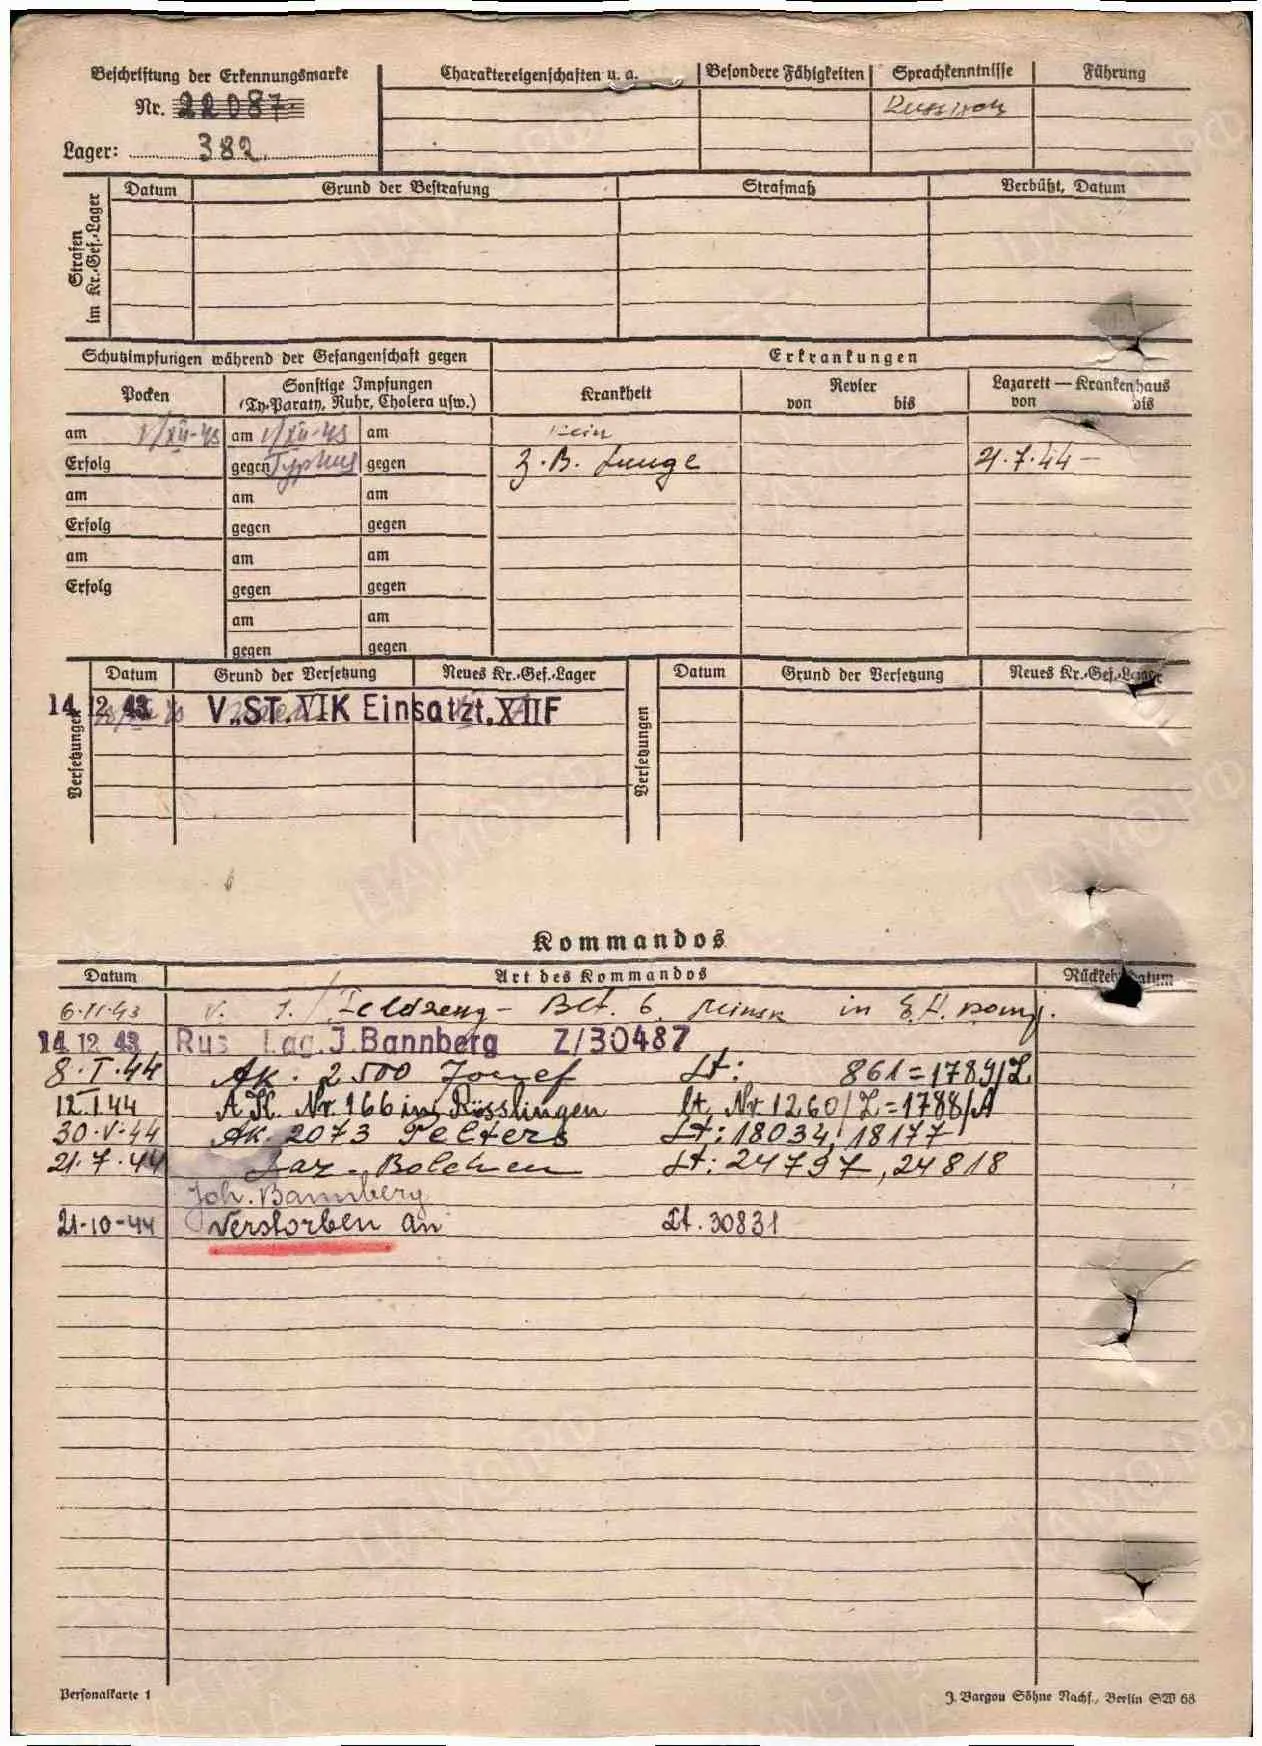 Beschriftung der Erkennungsmarke
Nr. 22087
Lager: 382
Charaktereigenschaften u. a. Besondere Fähigkeiten Sprachkenntnisse Führung
Russisch
Strafen im Kr.-Gef.-Lager
Datum Grund der Bestrafung Strafmaß Verbüßt, Datum
Schutzimpfungen während der Gefangenschaft gegen Erkrankungen
Pocken Sonstige Impfungen (Ty-Paraty, Ruhr, Cholera usw.) Krankheit Revier von bis Lazarett — Krankenhaus von bis
am 1/XII-43 am 1/XII-43 am kein
Erfolg gegen Typhus gegen Z. B. Lunge 21.7.44 –
am am am
Erfolg gegen gegen
am am am
Erfolg gegen gegen
am am
gegen gegen
Versetzungen Datum Grund der Versetzung Neues Kr.-Gef.-Lager Versetzungen Datum Grund der Versetzung Neues Kr.-Gef.-Lager
14. 12 43 V.ST.VIK Einsatzt.XIIF
Kommandos
Datum Art des Kommandos Rückkehr Datum
6.11.43 v. 1./Feldzeug- Btl. 6 Minsk in
14 12 43 Rus Lag. J. Bannberg Z/30487
8.I.44 AK. 2500 Josef Lt: 861=1789/Z
12.I.44 A.K. Nr. 166 in Rösslingen lt. Nr 1260/Z=1788/A
30.V.44 AK. 2073 Pelters Lt: 18034, 18177
21.7.44 Laz. Bolchen Lt: 24797, 24818
Joh. Bannberg
21-10-44 Verstorben an Lt. 30831
Personalkarte 1
J. Bargou Söhne Nachf., Berlin SW 68
ЦАМО РФ